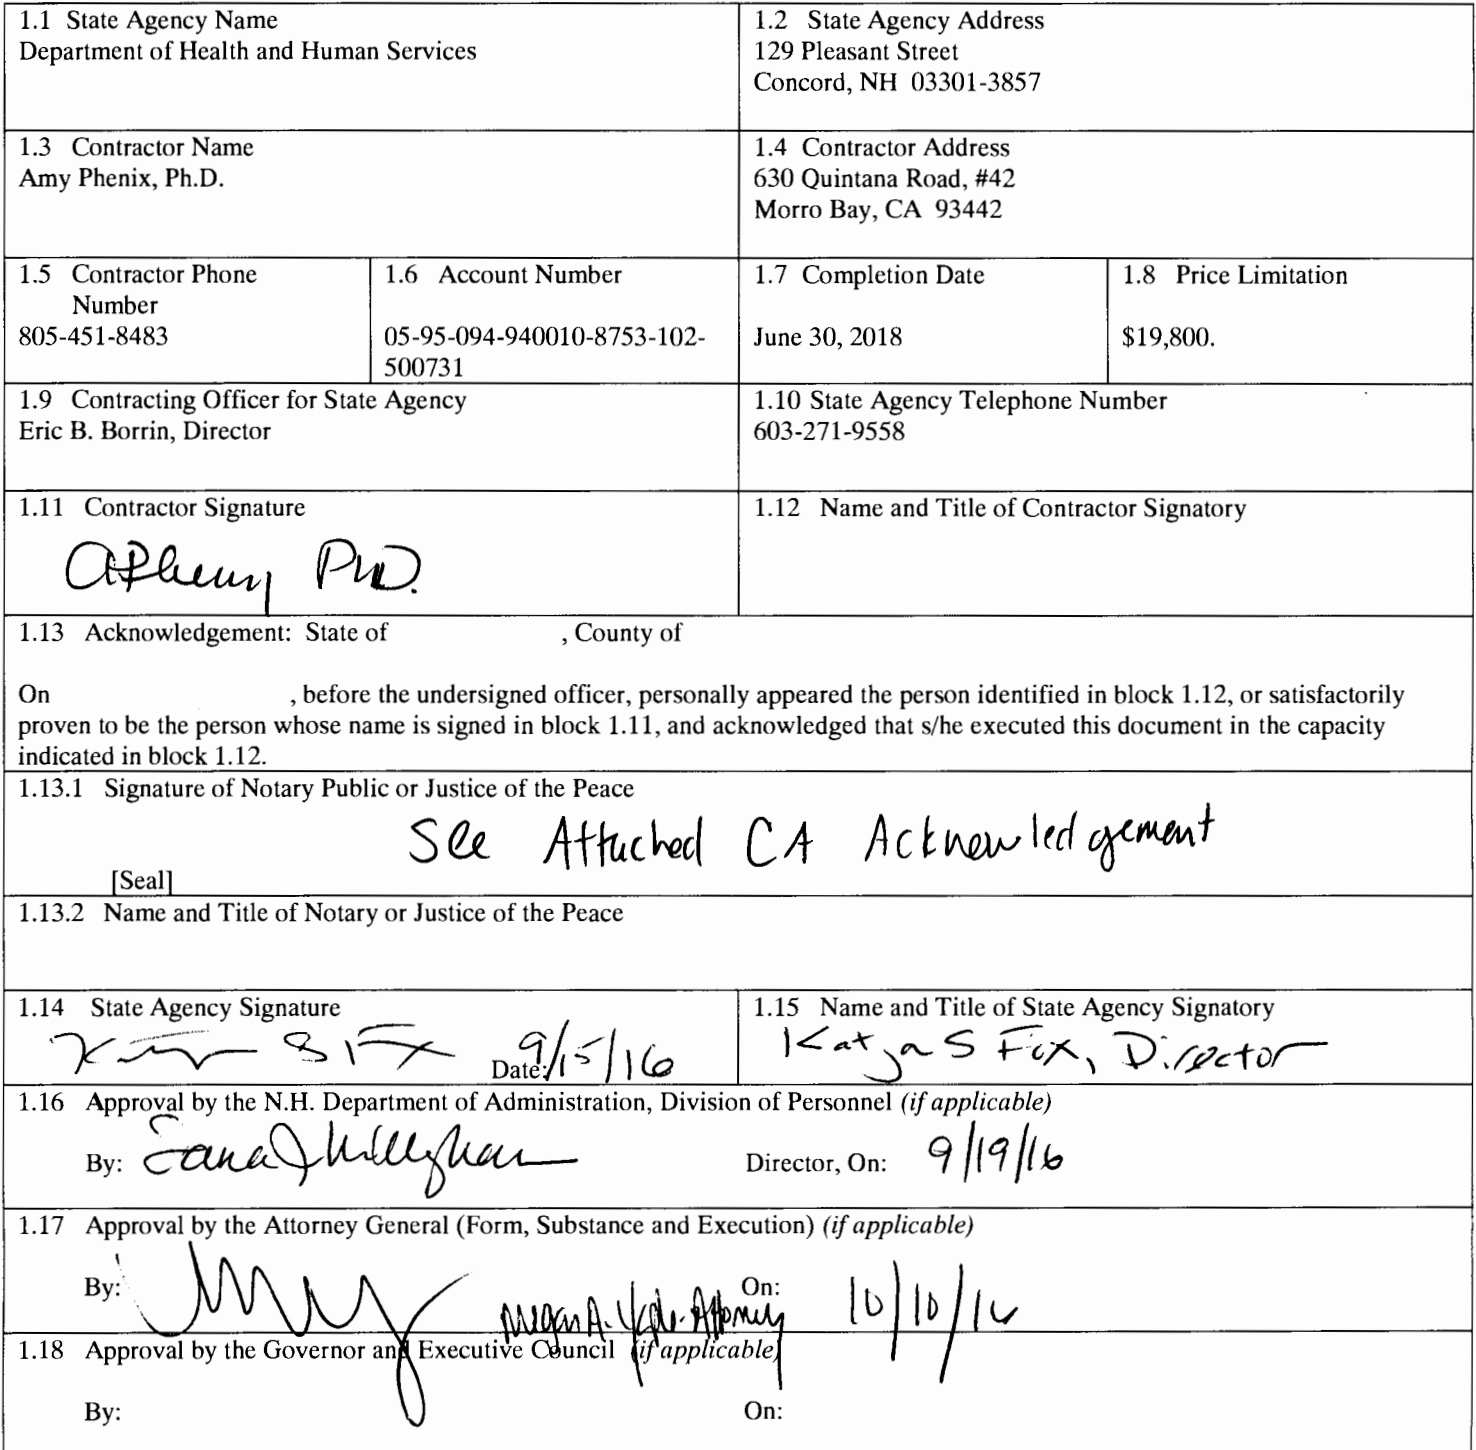 1.1 State Agency Name
Department of Health and Human Services
1.2 State Agency Address
129 Pleasant Street
Concord, NH 03301-3857
1.3 Contractor Name
Amy Phenix, Ph.D.
1.4 Contractor Address
630 Quintana Road, #42
Morro Bay, CA 93442
1.5 Contractor Phone
Number
805-451-8483
1.6 Account Number
05-95-094-940010-8753-102-
500731
1.7 Completion Date
June 30, 2018
1.8 Price Limitation
$19,800.
1.9 Contracting Officer for State Agency
Eric B. Borrin, Director
1.10 State Agency Telephone Number
603-271-9558
1.11 Contractor Signature
PhD.
1.12 Name and Title of Contractor Signatory
1.13 Acknowledgement: State of , County of
On , before the undersigned officer, personally appeared the person identified in block 1.12, or satisfactorily
proven to be the person whose name is signed in block 1.11, and acknowledged that s/he executed this document in the capacity
indicated in block 1.12.
1.13.1 Signature of Notary Public or Justice of the Peace
See Attached CA Acknowledgement
[Seal]
1.13.2 Name and Title of Notary or Justice of the Peace
1.14 State Agency Signature
Date: 9/15/16
1.15 Name and Title of State Agency Signatory
Katja S Fox, Director
1.16 Approval by the N.H. Department of Administration, Division of Personnel (if applicable)
By: Director, On: 9/19/16
1.17 Approval by the Attorney General (Form, Substance and Execution) (if applicable)
By: Megan A. Attorney On: 10/10/16
1.18 Approval by the Governor and Executive Council (if applicable)
By: On: